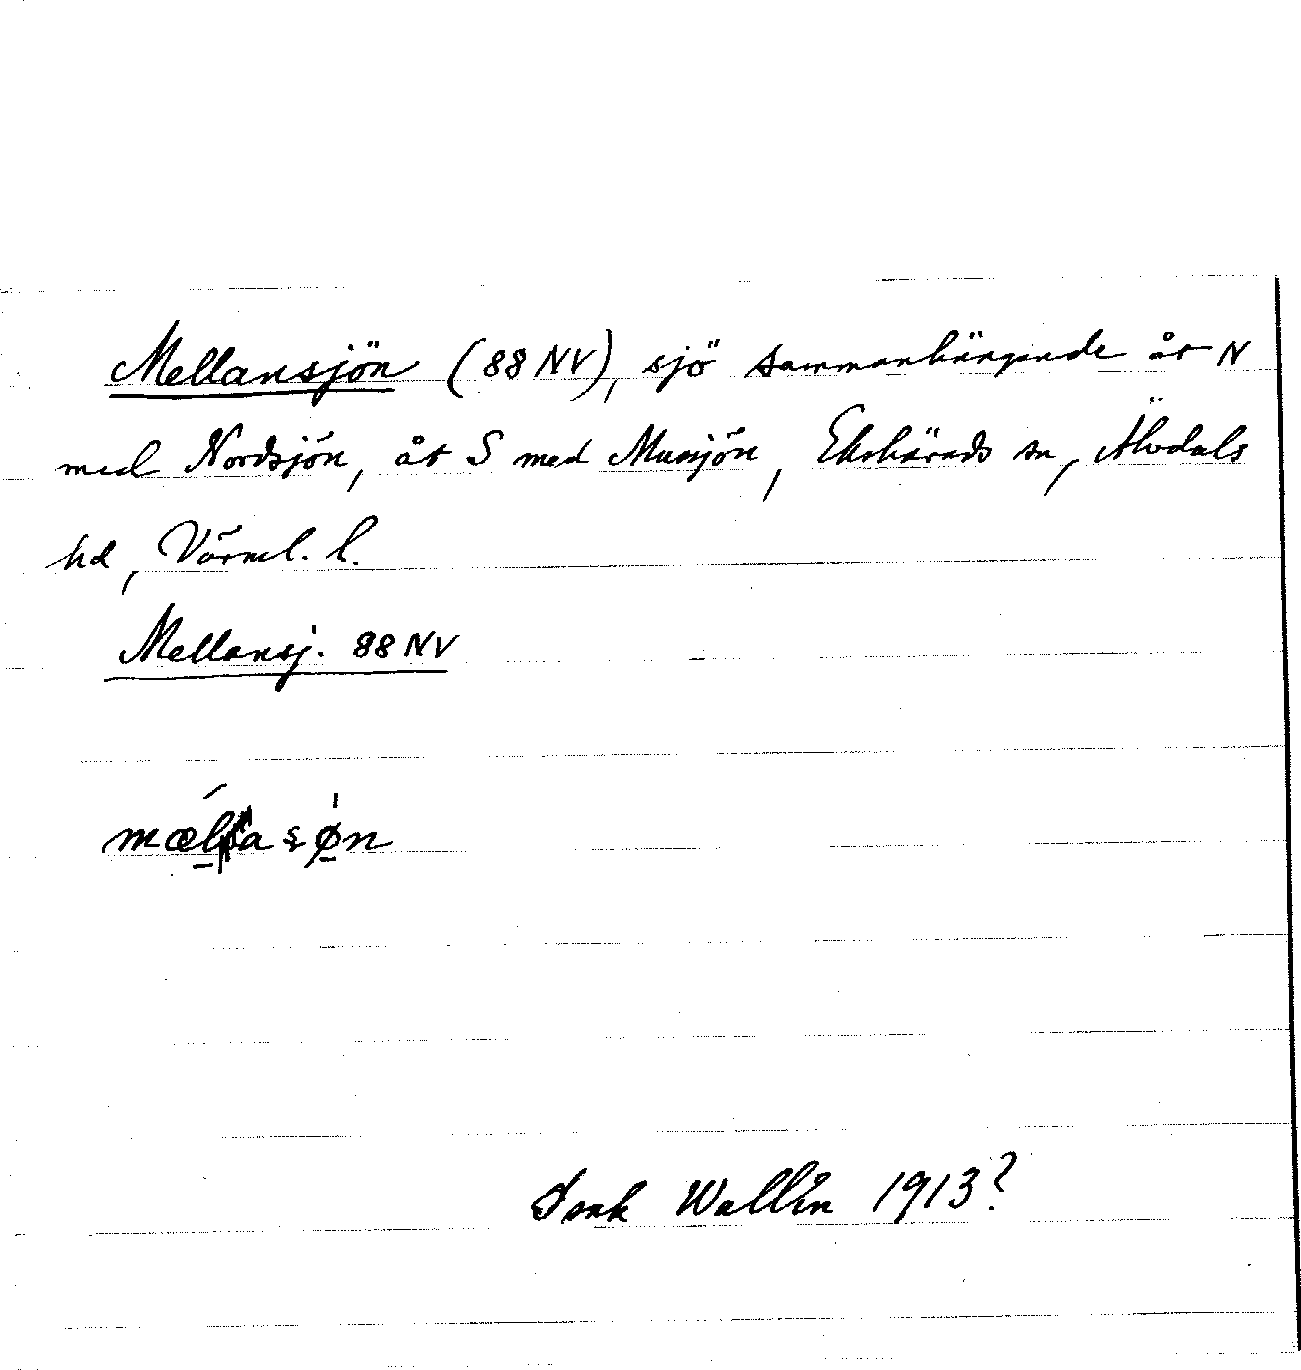 Mellansjön (88 NV), sjö sammanhängande åt N
med Nordsjön, åt S med Musjön, Ekshärads sn, Älvdals
hd, Värml. l.
Mellansj. 88 NV
Wallin 1913?